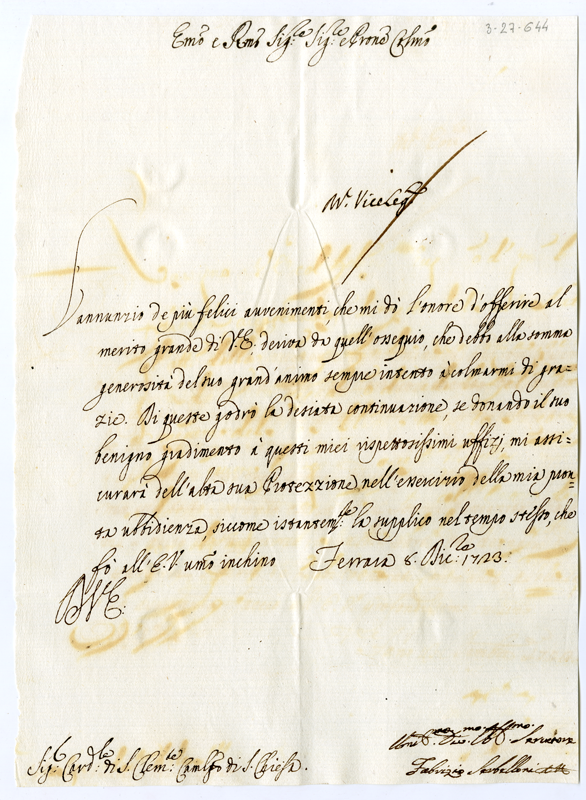 3-27-644
Emo e Rmo Sig.re Sig.re e Prone Colmo
L'annunzio de più felici avvenimenti, che mi dò l'onore d'offerire al
merito grande di V.E. deriva da quell'ossequio, che debbo alla somma
generosità del suo grand'animo sempre intento à colmarmi di gra=
zie. Di queste godrò la desiata continuazione, se donando il suo
benigno gradimento à questi miei rispettosissimi uffizj, mi assi=
curarà dell'alta sua Protezzione nell'essercizio della mia pron=
ta ubbidienza, siccome istantem.te la supplico nel tempo stesso, che
fò all'E.V. umo inchino Ferrara 8. Dic.re 1723.
D.V.E.
Servitore
Fabrizio Serbelloni
Sig.r Card.le di S. Clem.te Camlgo di S. Chiesa.